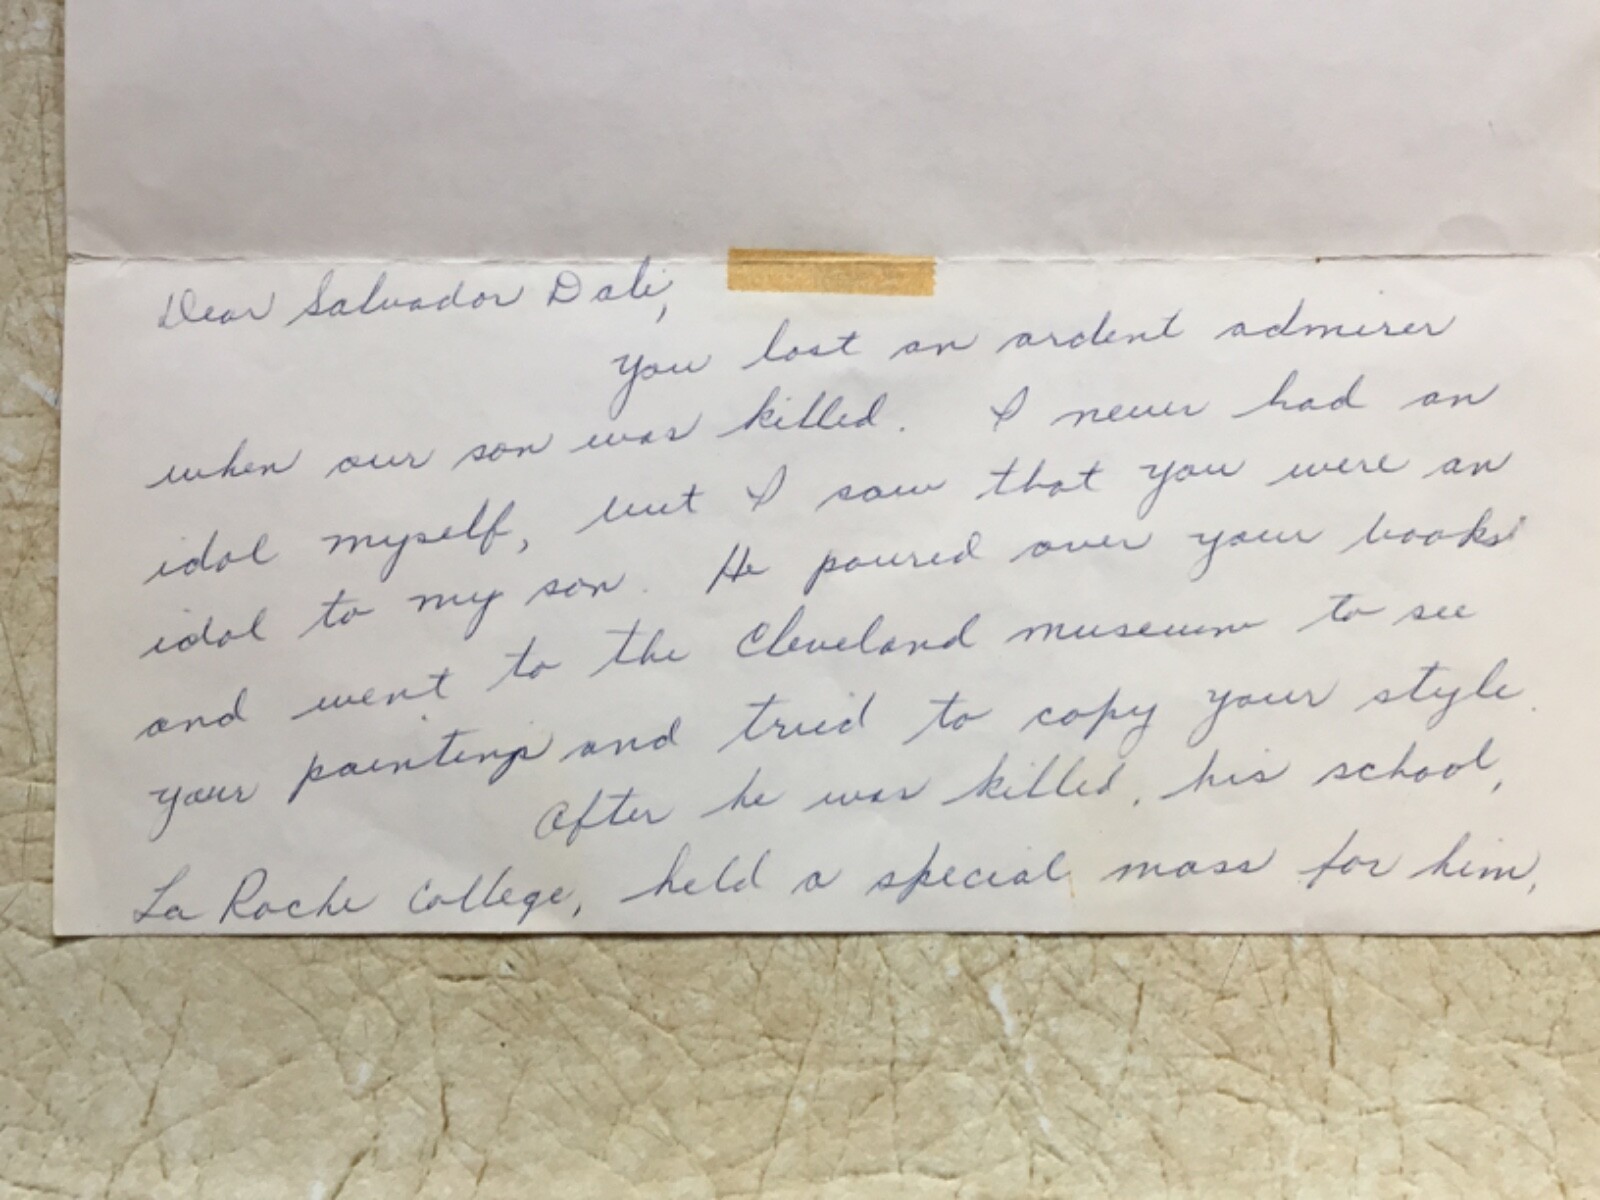 Dear Salvador Dali,
You lost an ardent admirer
when our son was killed. I never had an
idol myself, but I saw that you were an
idol to my son. He poured over your books
and went to the Cleveland museum to see
your paintings and tried to copy your style.
After he was killed, his school,
La Roche College, held a special mass for him,